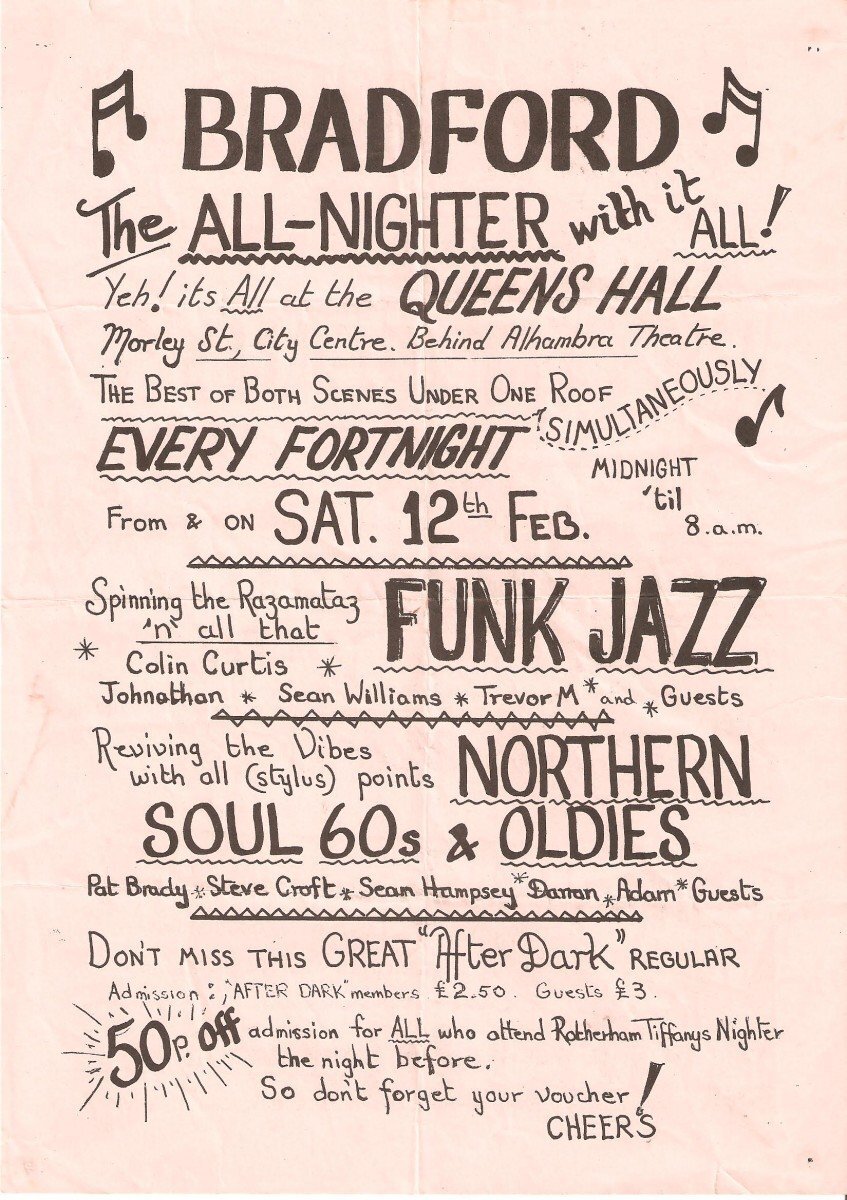 BRADFORD
The ALL-NIGHTER with it ALL!
Yeh! its All at the QUEENS HALL
Morley St., City Centre. Behind Alhambra Theatre.
THE BEST OF BOTH SCENES UNDER ONE ROOF
SIMULTANEOUSLY
EVERY FORTNIGHT
MIDNIGHT
'til
8.a.m.
From & ON SAT. 12th FEB.
Spinning the Razamataz
'n' all that
FUNK JAZZ
* Colin Curtis *
Johnathan * Sean Williams * Trevor M * and * Guests
Reviving the Vibes
with all (stylus) points
NORTHERN
SOUL 60s & OLDIES
Pat Brady * Steve Croft * Sean Hampsey * Darran * Adam * Guests
DON'T MISS THIS GREAT "After Dark" REGULAR
Admission:, "AFTER DARK" members £2.50. Guests £3.
50p. off admission for ALL who attend Rotherham Tiffanys Nighter
the night before.
So don't forget your voucher!
CHEERS